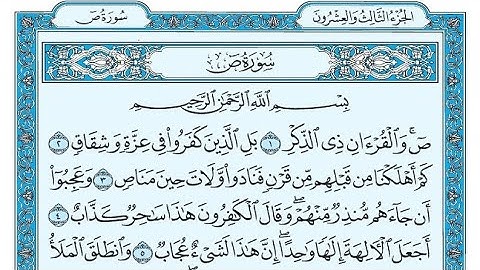 الجزء الثالث والعشرون
سورة ص
سورة ص
بسم الله الرحمن الرحيم
صٓ ۚ وَٱلۡقُرۡءَانِ ذِي ٱلذِّكۡرِ ١ بَلِ ٱلَّذِينَ كَفَرُواْ فِي عِزَّةٖ وَشِقَاقٖ ٢
كَمۡ أَهۡلَكۡنَا مِن قَبۡلِهِم مِّن قَرۡنٖ فَنَادَواْ وَّلَاتَ حِينَ مَنَاصٖ ٣ وَعَجِبُوٓاْ
أَن جَآءَهُم مُّنذِرٞ مِّنۡهُمۡۖ وَقَالَ ٱلۡكَٰفِرُونَ هَٰذَا سَٰحِرٞ كَذَّابٌ ٤
أَجَعَلَ ٱلۡأٓلِهَةَ إِلَٰهٗا وَٰحِدًاۖ إِنَّ هَٰذَا لَشَيۡءٌ عُجَابٞ ٥ وَٱنطَلَقَ ٱلۡمَلَأُ